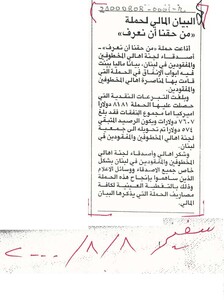 البيان المالي لحملة
«من حقنا أن نعرف»
أذاعت حملة «من حقنا أن نعرف» -
أصدقاء لجنة أهالي المخطوفين
والمفقودين في لبنان، بياناً مالياً بينت
فيه أبواب الإنفاق في الحملة التي
قامت بها لمناصرة أهالي المخطوفين
والمفقودين.
وبلغت التبرعات النقدية التي
حصلت عليها الحملة ٨١٨١ دولارا
اميركيا أما مجموع النفقات فقد بلغ
٧٦٠٧ دولارات ويكون الرصيد المتبقي
٥٧٤ دولارا تم تحويله الى جمعية
لجنة أهالي المخطوفين والمفقودين في
لبنان.
وشكر أهالي وأصدقاء لجنة أهالي
المخطوفين والمفقودين في لبنان بشكل
خاص جميع الأصدقاء ووسائل الإعلام
الذين ساهموا بإنجاح هذه الحملة
وذلك بالتغطية العينية لكافة
مصاريف الحملة التي يذكرها البيان
المالي.
سفير
٢٠٠٠/٨/٨